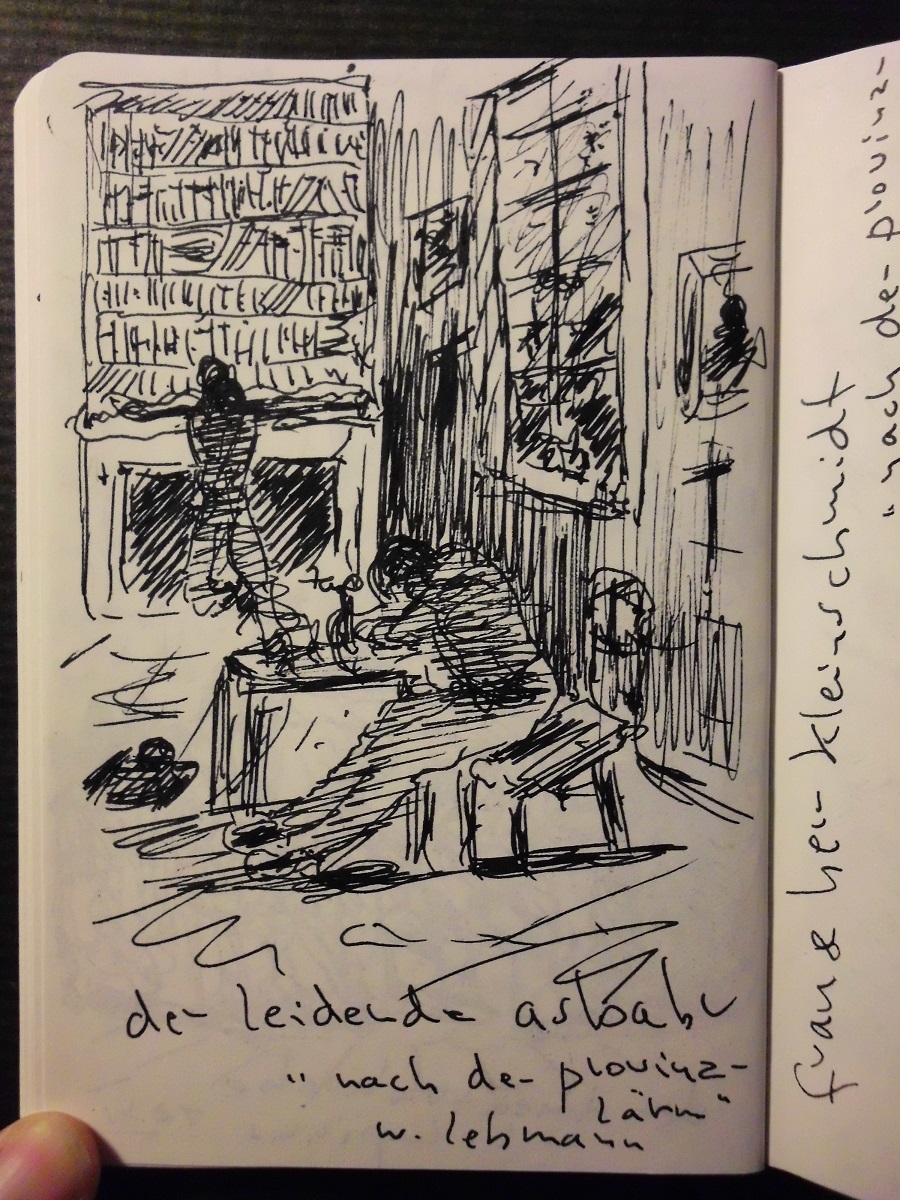 der leidende
"nach der provinz-
lärm"
w. lehmann
frau & herr kleinschmidt
"nach der provinz-